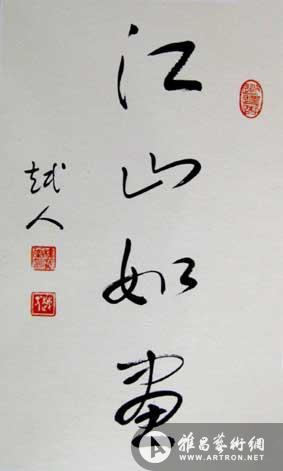 江山如画
越人
雅昌藝術網
WWW.ARTRON.NET